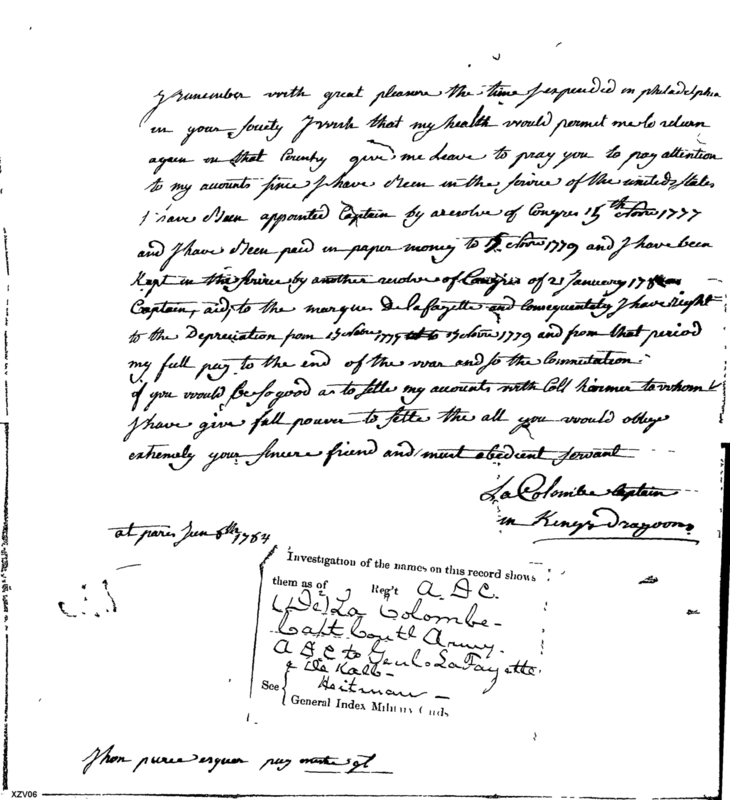 I remember with great pleasure the time I expended in philadelphia
in your society I wish that my health would permit me to return
again on that Country give me leave to pray you to pay attention
to my acounts since I have Been in the service of the united states
I have Been appointed Captain by a resolve of Congres 15th 9bre 1777
and I have Been paid in paper money to 15 9bre 1779 and I have been
Kept in the service by another resolve of Congres of 21 January
Captain, aid, to the marques De lafayette and Consequentaly I have right
to the Depreciation from 15 9bre 1777 to 15 9bre 1779 and from that period
my full pay to the end of the war and so the Commutation
if you would Be so good as to settle my accounts with Coll to whom
I have give full power to settle the all you would oblige
extremely your sincere friend and most obedient servant
La Colombe Captain
in King's Dragoons
at paris Jun 6th 1784
Investigation of the names on this record shows
them as of Reg't A. D C.
(De) La Colombe -
Capt Contl Army.
A D C to Genl. LaFayette
& De Kalb -
See Heitman -
General Index Military Cards
Jhon pierce esquer pay
XZV06